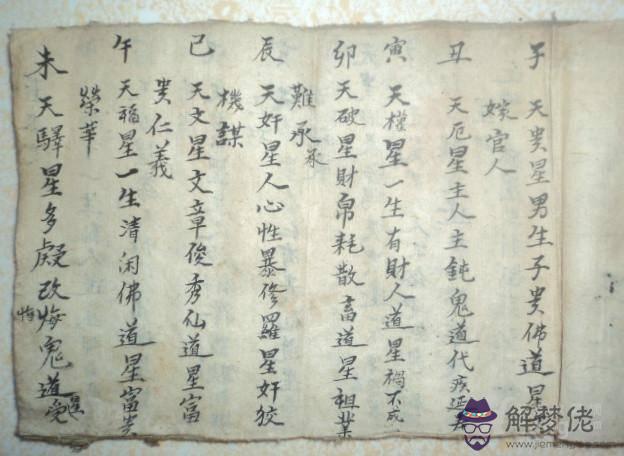 子 天贵星男生子贵佛道星
嫁官人
丑 天厄星主人主鈍鬼道代疾延
寅 天權星一生有財人道星禍不成
卯 天破星財帛耗散畜道星祖業
難承承
辰 天奸星人心性暴修羅星奸狡
機謀
巳 天文星文章俊秀仙道星富
贵仁義
午 天福星一生清闲佛道星富贵
榮華
未 天驛星多疑改悔鬼道
悔
解梦佬
www.jiemenglao.com